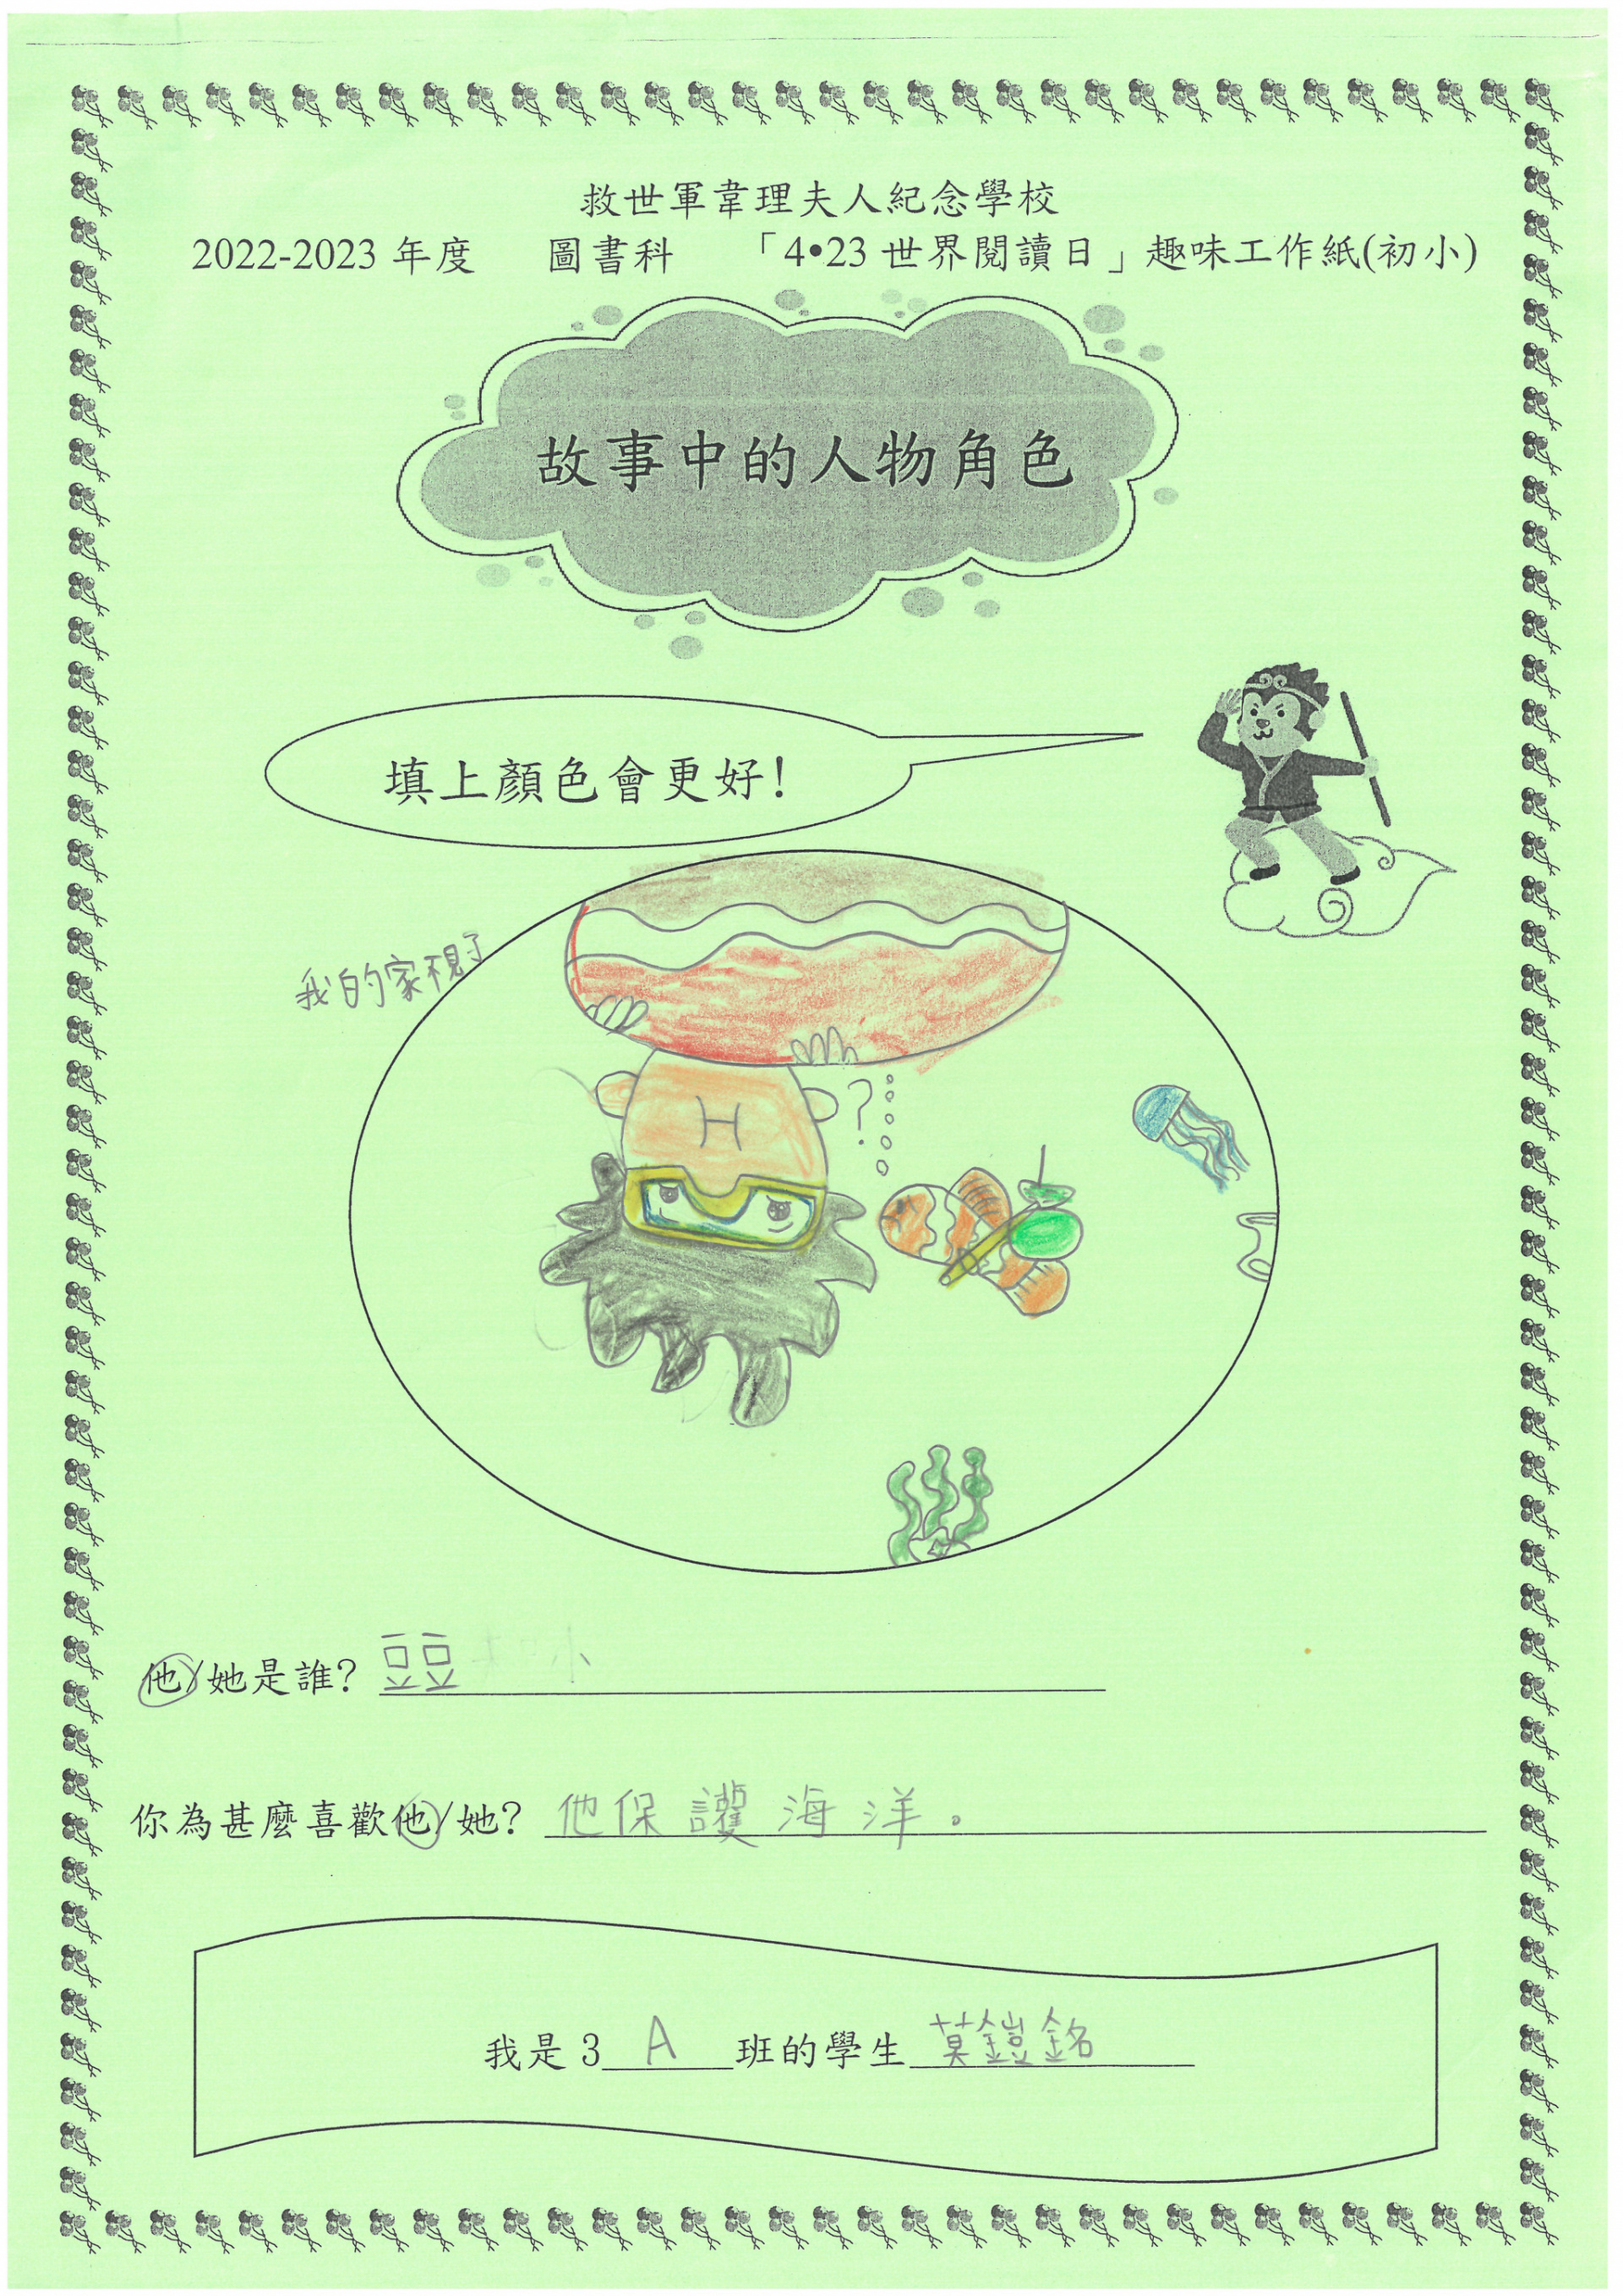 救世軍韋理夫人紀念學校
2022-2023 年度 圖書科 「4•23 世界閱讀日」趣味工作紙(初小)
故事中的人物角色
填上顏色會更好!
我的家不見了
H
?
他/她是誰? 豆豆
你為甚麼喜歡他/她? 他保護海洋。
我是 3 A 班的學生 莫鎧銘